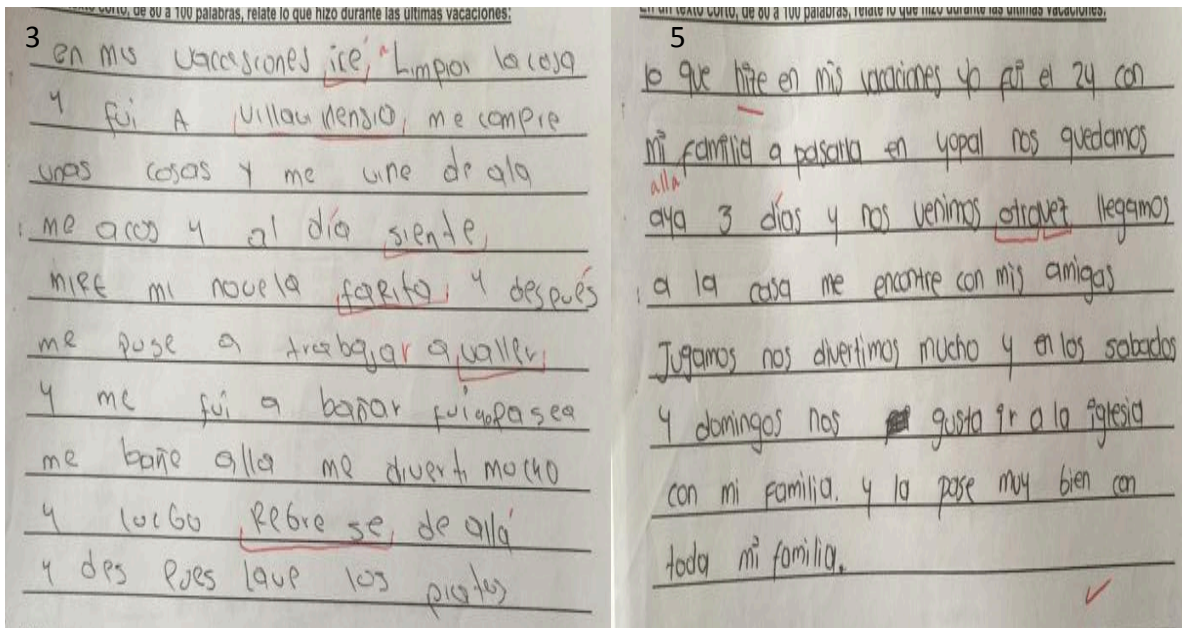 3
en mis vaccesiones icé Limpiar la casa
y fui A villauvensio me compre
unas cosas y me vine de ala
me acos y al día siente
mire mi novela farito y después
me puse a trabajar a valler
y me fui a bañar fui a pasea
me bañe alla me diverti mucho
y luego Regre se de allá
y des pues lave los platos
5
En un texto corto, de 80 a 100 palabras, relate lo que hizo durante las últimas vacaciones:
lo que hize en mis vacaciones yo fui el 24 con
mi familia a pasarla en yopal nos quedamos
alla
aya 3 días y nos venimos otravez llegamos
a la casa me encontre con mis amigas
Jugamos nos divertimos mucho y en los sabados
y domingos nos gusta ir a la iglesia
con mi familia. y la pase muy bien con
toda mi familia.